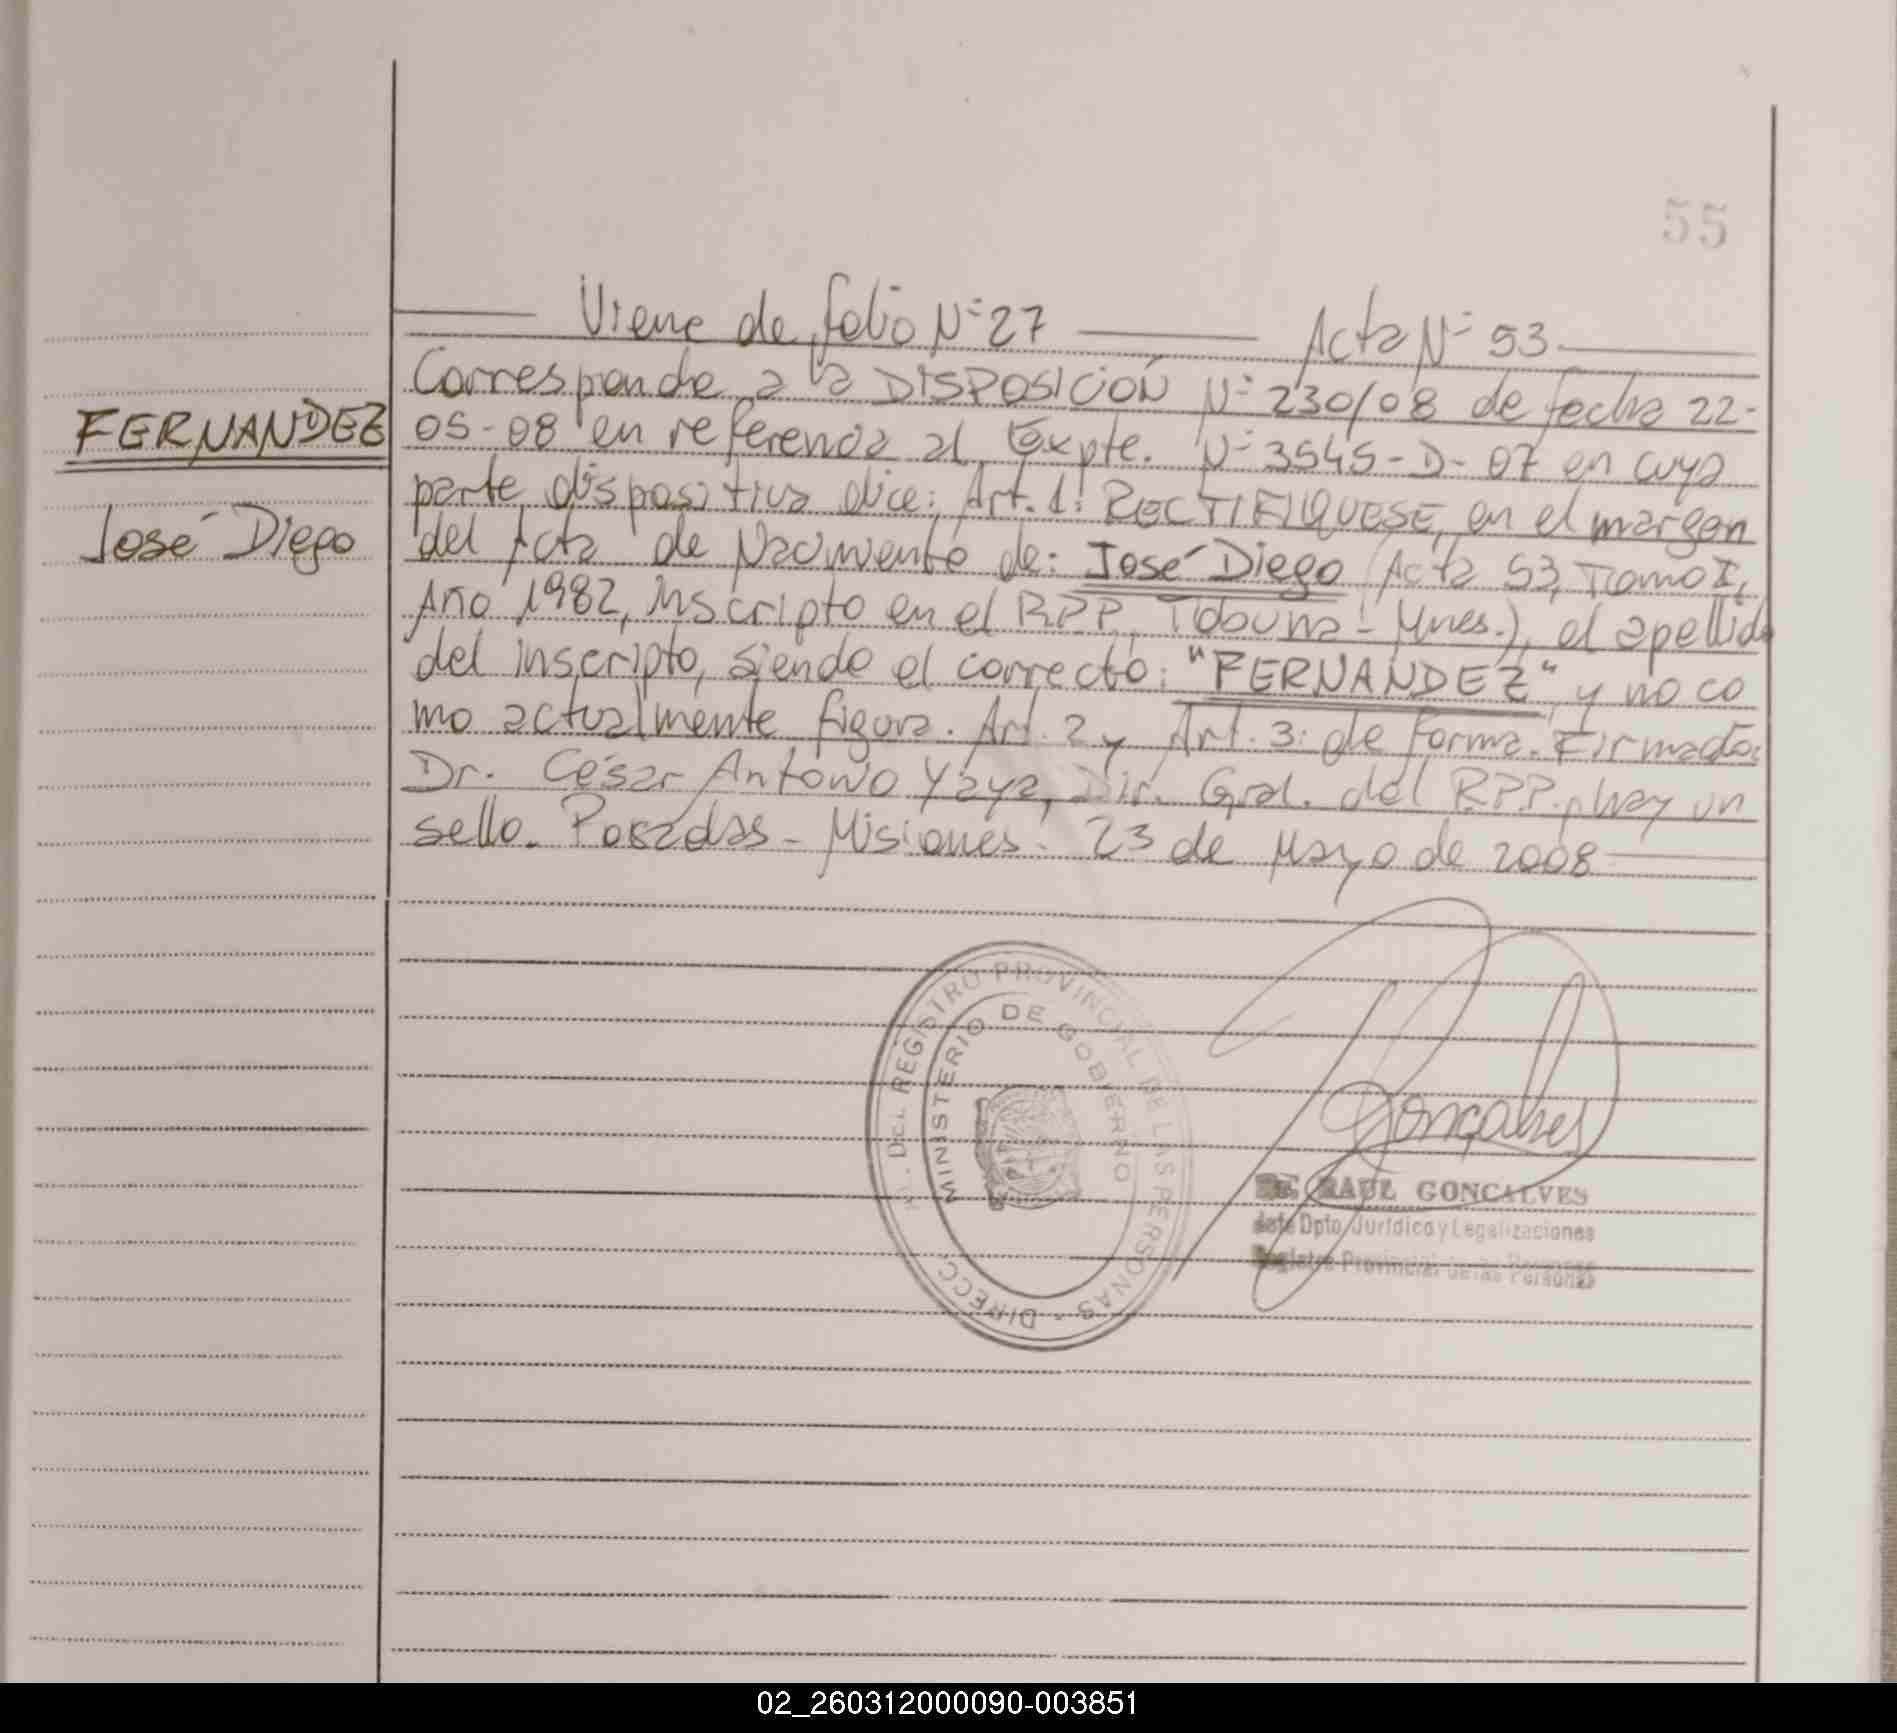 55
Viene de folio Nº 27 Acta Nº 53
Corresponde a la DISPOSICIÓN Nº 230/08 de fecha 22-
FERNANDEZ
05-08 en referencia al Expte. Nº 3545-D-07 en cuya
parte dispositiva dice: Art. 1: RECTIFIQUESE, en el margen
José Diego
del Acta de Nacimiento de: José Diego (Acta 53, Tomo I,
Año 1982, inscripto en el RPP, Tobuna - Mnes.), el apellido
del inscripto, siendo el correcto: "FERNANDEZ", y no co
mo actualmente figura. Art. 2 y Art. 3: de forma. Firmado:
Dr. César Antonio Yaya, Dir. Gral. del RPP., hay un
sello. Posadas - Misiones. 23 de Mayo de 2008
REGISTRO PROVINCIAL DE LAS PERSONAS - DIRECC.
MINISTERIO DE GOBIERNO
Gonçalves
Dr. RAUL GONCALVES
Jefe Dpto. Jurídico y Legalizaciones
Registro Provincial de las Personas
02_260312000090-003851